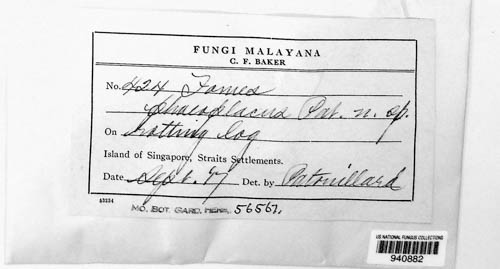 FUNGI MALAYANA
C. F. BAKER
No. 424 Fomes
Pat. n. sp.
On rotting log
Island of Singapore, Straits Settlements.
Date Sept. 17 Det. by Patouillard
53234
MO. BOT. GARD. HERB. 56567.
US NATIONAL FUNGUS COLLECTIONS
940882